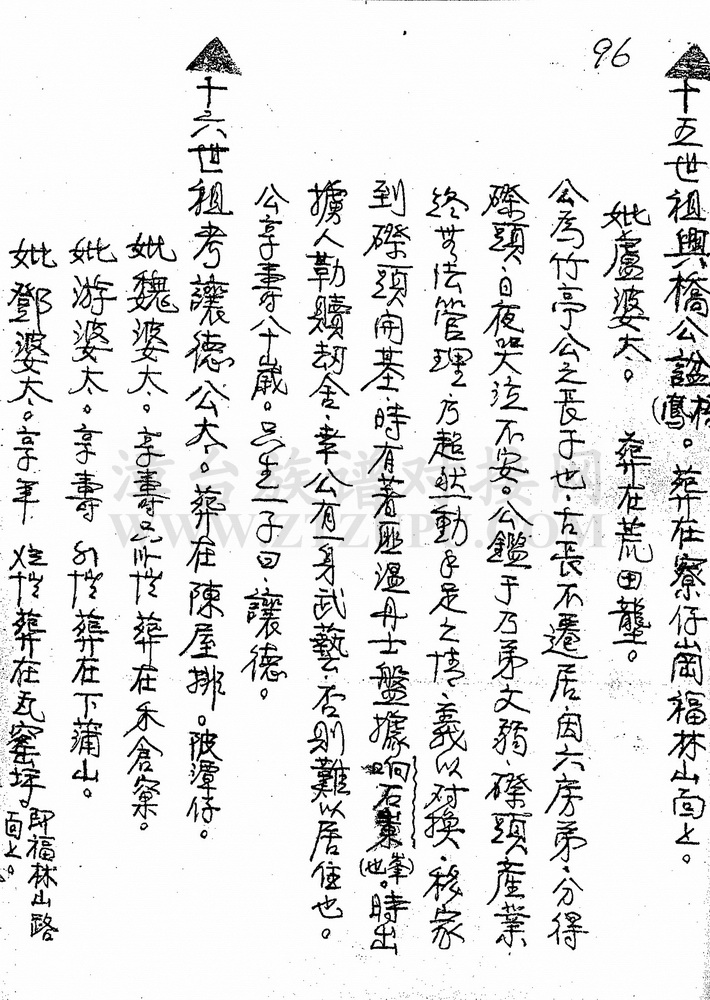 96
十五世祖興橋公諡梧(鳳)。葬在寮仔崗福林山面上。
妣盧婆太。 葬在荒田壟。
公為竹亭公之長子也、古長不遷居、因六房弟、分得
磜頭、日夜哭泣不安。公鑑于乃弟文弱、磜頭產業、
終無法管理、乃超然動手足之情、義以对換、移家
到磜頭開基、時有著匪溫丹士盤據向石東峯(也)。時出
擄人勒贖刼舍、幸公有一身武藝、否則難以居住也。
公享壽八十歲。只生一子曰、讓德。
十六世祖考讓德公太。葬在陳屋排。陂潭仔。
妣魏婆太。享壽 葬在禾倉寮。
妣游婆太。享壽 葬在下蒲山。
妣鄧婆太。享年 葬在瓦窰坪。即福林山路面上。
漳台族谱对接网
WWW.ZTZUPU.COM